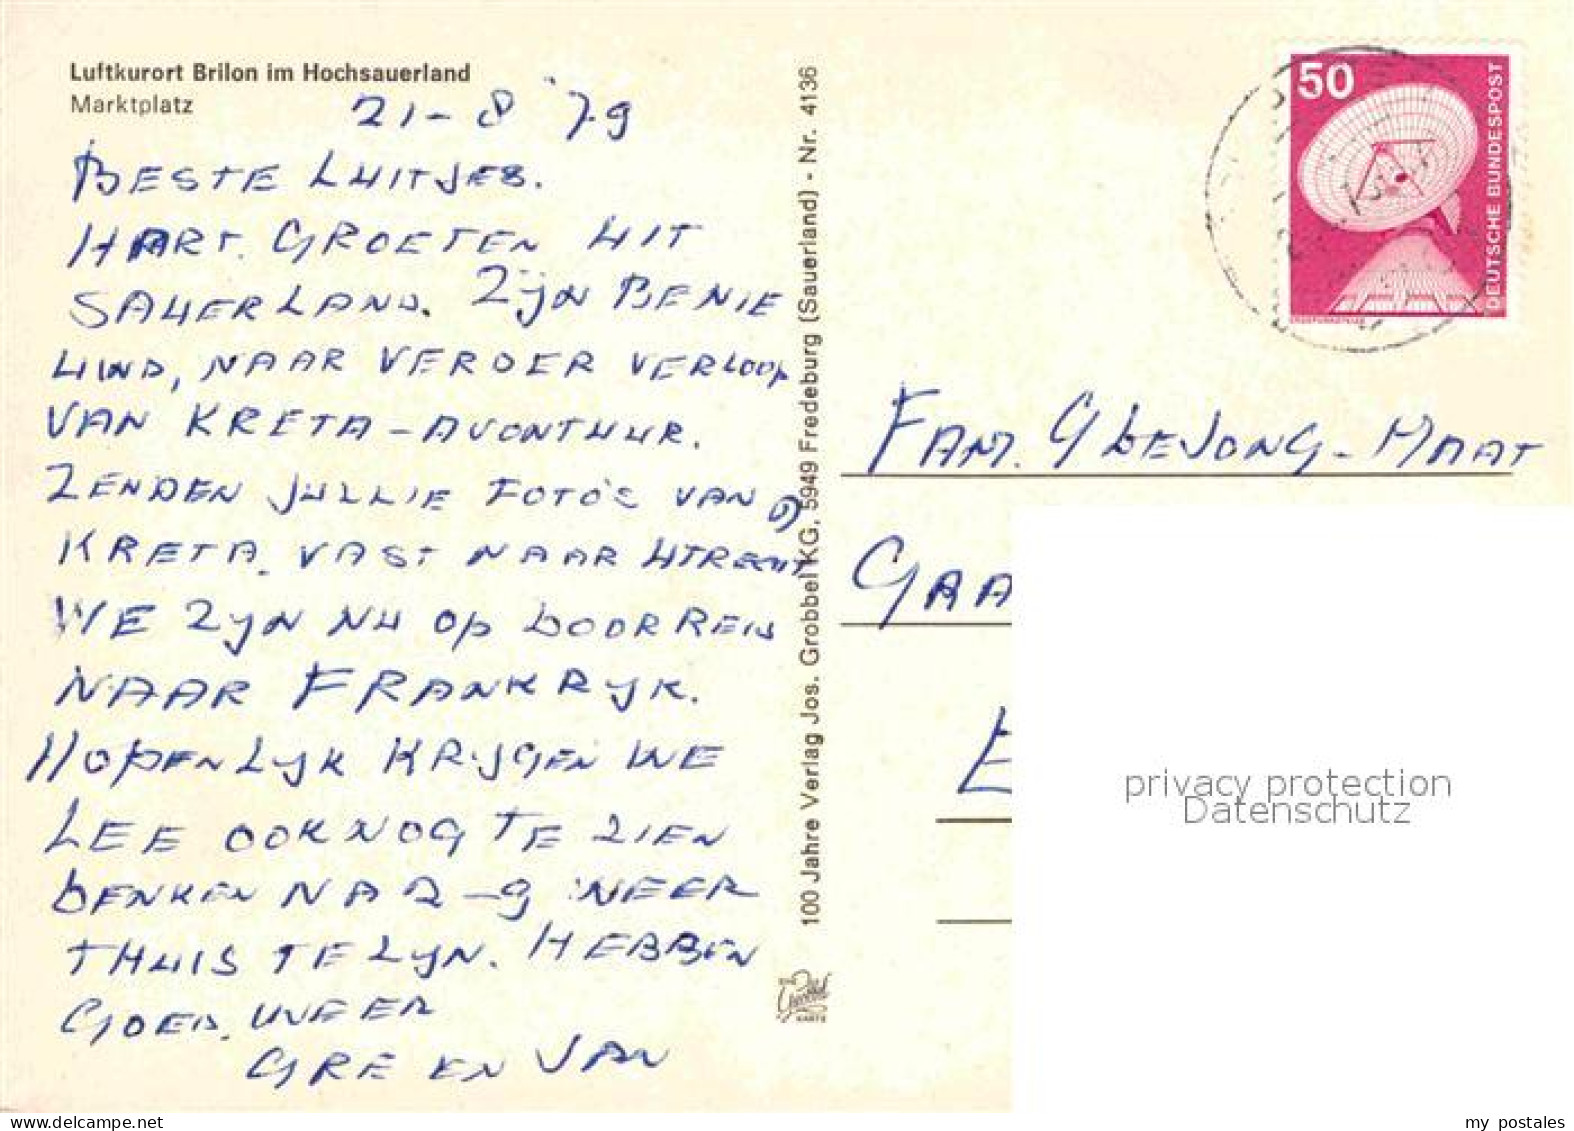 Luftkurort Brilon im Hochsauerland
Marktplatz
21-8 '79
BESTE LUITJES.
HART. GROETEN UIT
SAUERLAND. ZIJN BENIE
UWD, NAAR VERDER VERLOOP
VAN KRETA-AVONTUUR.
ZENDEN JULLIE FOTO'S VAN
KRETA. VAST NAAR UTRECHT
WE ZIJN NU OP DOORREIS
NAAR FRANKRIJK.
HOPENLIJK KRIJGEN WE
LEE OOK NOG TE ZIEN
DENKEN NA 2-9 WEER
THUIS TE ZIJN. HEBBEN
GOED. WEER
GRE EN JAN
100 Jahre Verlag Jos. Grobbel KG, 5949 Fredeburg (Sauerland) - Nr. 4136
Grobbel
KARTE
50
DEUTSCHE BUNDESPOST
ERDEFUNKSTELLE
FAM. G DE JONG-MAAT
GRA
E
privacy protection
Datenschutz
my postales